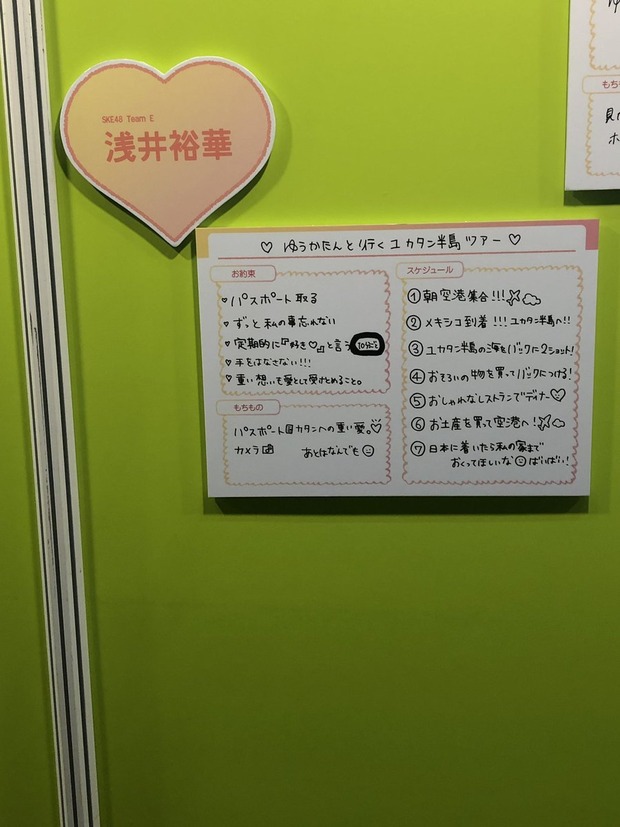 SKE48 Team E
浅井裕華
♡ ゆうかたんと行く ユカタン半島 ツアー ♡
お約束
♡ パスポート取る
♡ ずっと私の事忘れない
♡ 定期的に『好き♡』と言う 10分ごと
♡ 手をはなさない!!!
♡ 重い想いも愛として受けとめること。
もちもの
パスポート カタンへの重い愛。♡
カメラ あとはなんでも
スケジュール
① 朝空港集合!!!
② メキシコ到着!!! ユカタン半島へ!!
③ ユカタン半島の海をバックに2ショット!
④ おそろいの物を買ってバックにつける!
⑤ おしゃれなレストランでディナー♡
⑥ お土産を買って空港へ!
⑦ 日本に着いたら私の家まで
おくってほしいな ばいばい!
もち